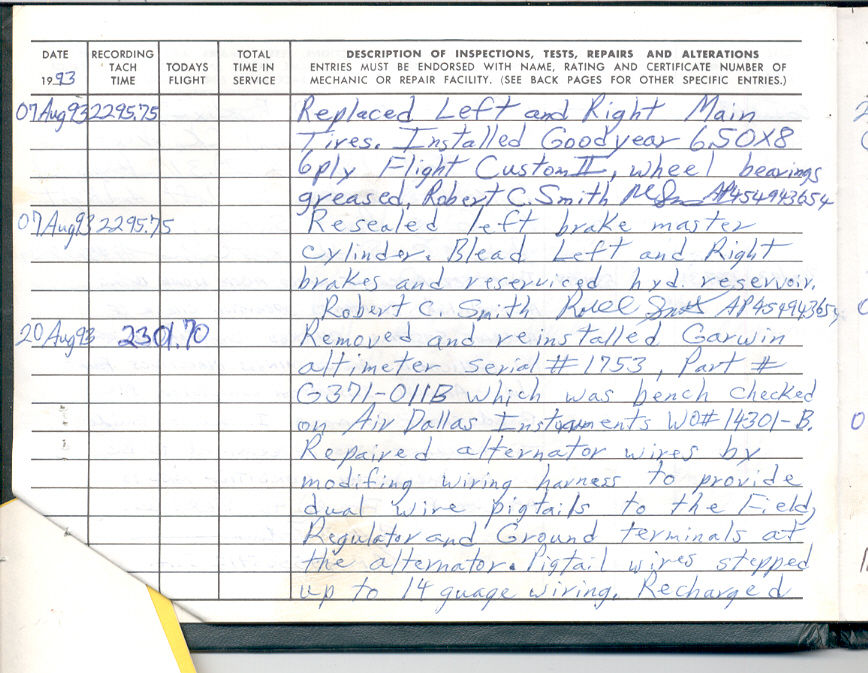 DATE
RECORDING
TACH
TIME
TODAYS
FLIGHT
TOTAL
TIME IN
SERVICE
DESCRIPTION OF INSPECTIONS, TESTS, REPAIRS AND ALTERATIONS
ENTRIES MUST BE ENDORSED WITH NAME, RATING AND CERTIFICATE NUMBER OF
MECHANIC OR REPAIR FACILITY. (SEE BACK PAGES FOR OTHER SPECIFIC ENTRIES.)
1993
07Aug93 2295.75 Replaced Left and Right Main
Tires. Installed Goodyear 6.50X8
6ply Flight Custom II, wheel bearings
greased. Robert C. Smith AP454943654
07Aug93 2295.75 Resealed left brake master
cylinder. Blead Left and Right
brakes and reserviced hyd. reservoir.
Robert C. Smith AP454943654
20Aug93 2301.70 Removed and reinstalled Garwin
altimeter serial # 1753, Part #
G371-011B which was bench checked
on Air Dallas Instruments WO# 14301-B.
Repaired alternator wires by
modifing wiring harness to provide
dual wire pigtails to the Field,
Regulator and Ground terminals at
the alternator. Pigtail wires stepped
up to 14 guage wiring. Recharged